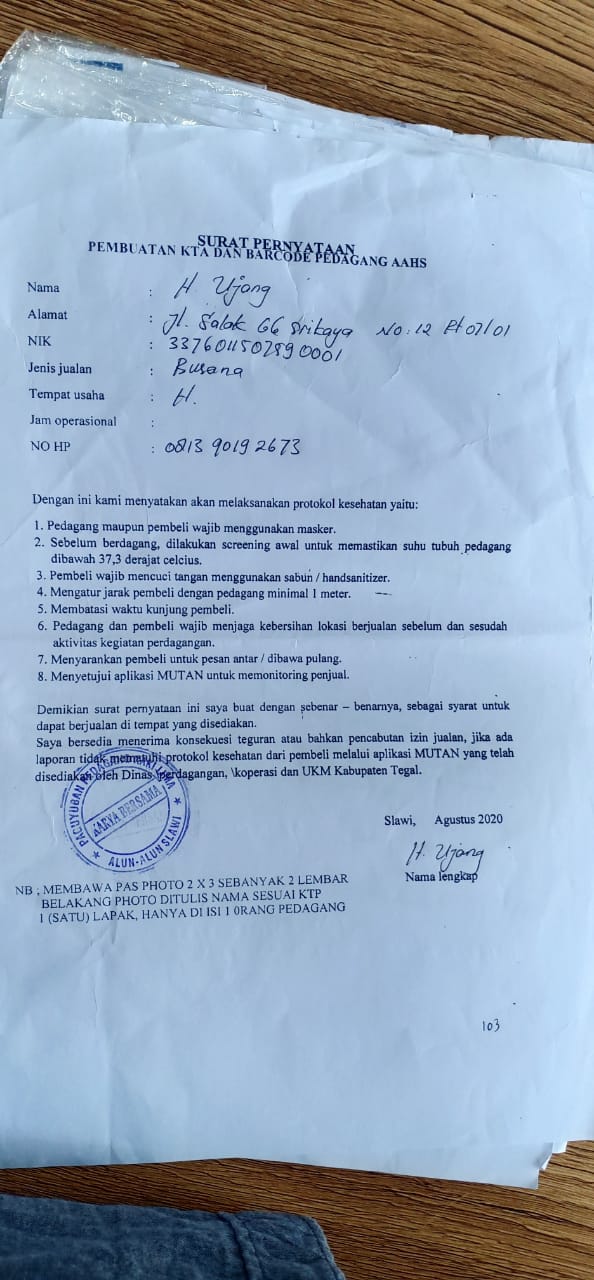 SURAT PERNYATAAN
PEMBUATAN KTA DAN BARCODE PEDAGANG AAHS
Nama : H. Ujang
Alamat : Jl. Salak GG Srikaya No: 12 Rt 07/01
NIK : 3376011502590001
Jenis jualan : Busana
Tempat usaha : H.
Jam operasional :
NO HP : 0813 9019 2673
Dengan ini kami menyatakan akan melaksanakan protokol kesehatan yaitu:
1. Pedagang maupun pembeli wajib menggunakan masker.
2. Sebelum berdagang, dilakukan screening awal untuk memastikan suhu tubuh pedagang
dibawah 37,3 derajat celcius.
3. Pembeli wajib mencuci tangan menggunakan sabun / handsanitizer.
4. Mengatur jarak pembeli dengan pedagang minimal 1 meter.
5. Membatasi waktu kunjung pembeli.
6. Pedagang dan pembeli wajib menjaga kebersihan lokasi berjualan sebelum dan sesudah
aktivitas kegiatan perdagangan.
7. Menyarankan pembeli untuk pesan antar / dibawa pulang.
8. Menyetujui aplikasi MUTAN untuk memonitoring penjual.
Demikian surat pernyataan ini saya buat dengan sebenar – benarnya, sebagai syarat untuk
dapat berjualan di tempat yang disediakan.
Saya bersedia menerima konsekuesi teguran atau bahkan pencabutan izin jualan, jika ada
laporan tidak mematuhi protokol kesehatan dari pembeli melalui aplikasi MUTAN yang telah
disediakan oleh Dinas \perdagangan, \koperasi dan UKM Kabupaten Tegal.
PAGUYUBAN PEDAGANG
KARYA BERSAMA
ALUN-ALUN SLAWI
Slawi, Agustus 2020
H. Ujang
Nama lengkap
NB ; MEMBAWA PAS PHOTO 2 X 3 SEBANYAK 2 LEMBAR
BELAKANG PHOTO DITULIS NAMA SESUAI KTP
1 (SATU) LAPAK, HANYA DI ISI 1 0RANG PEDAGANG
103